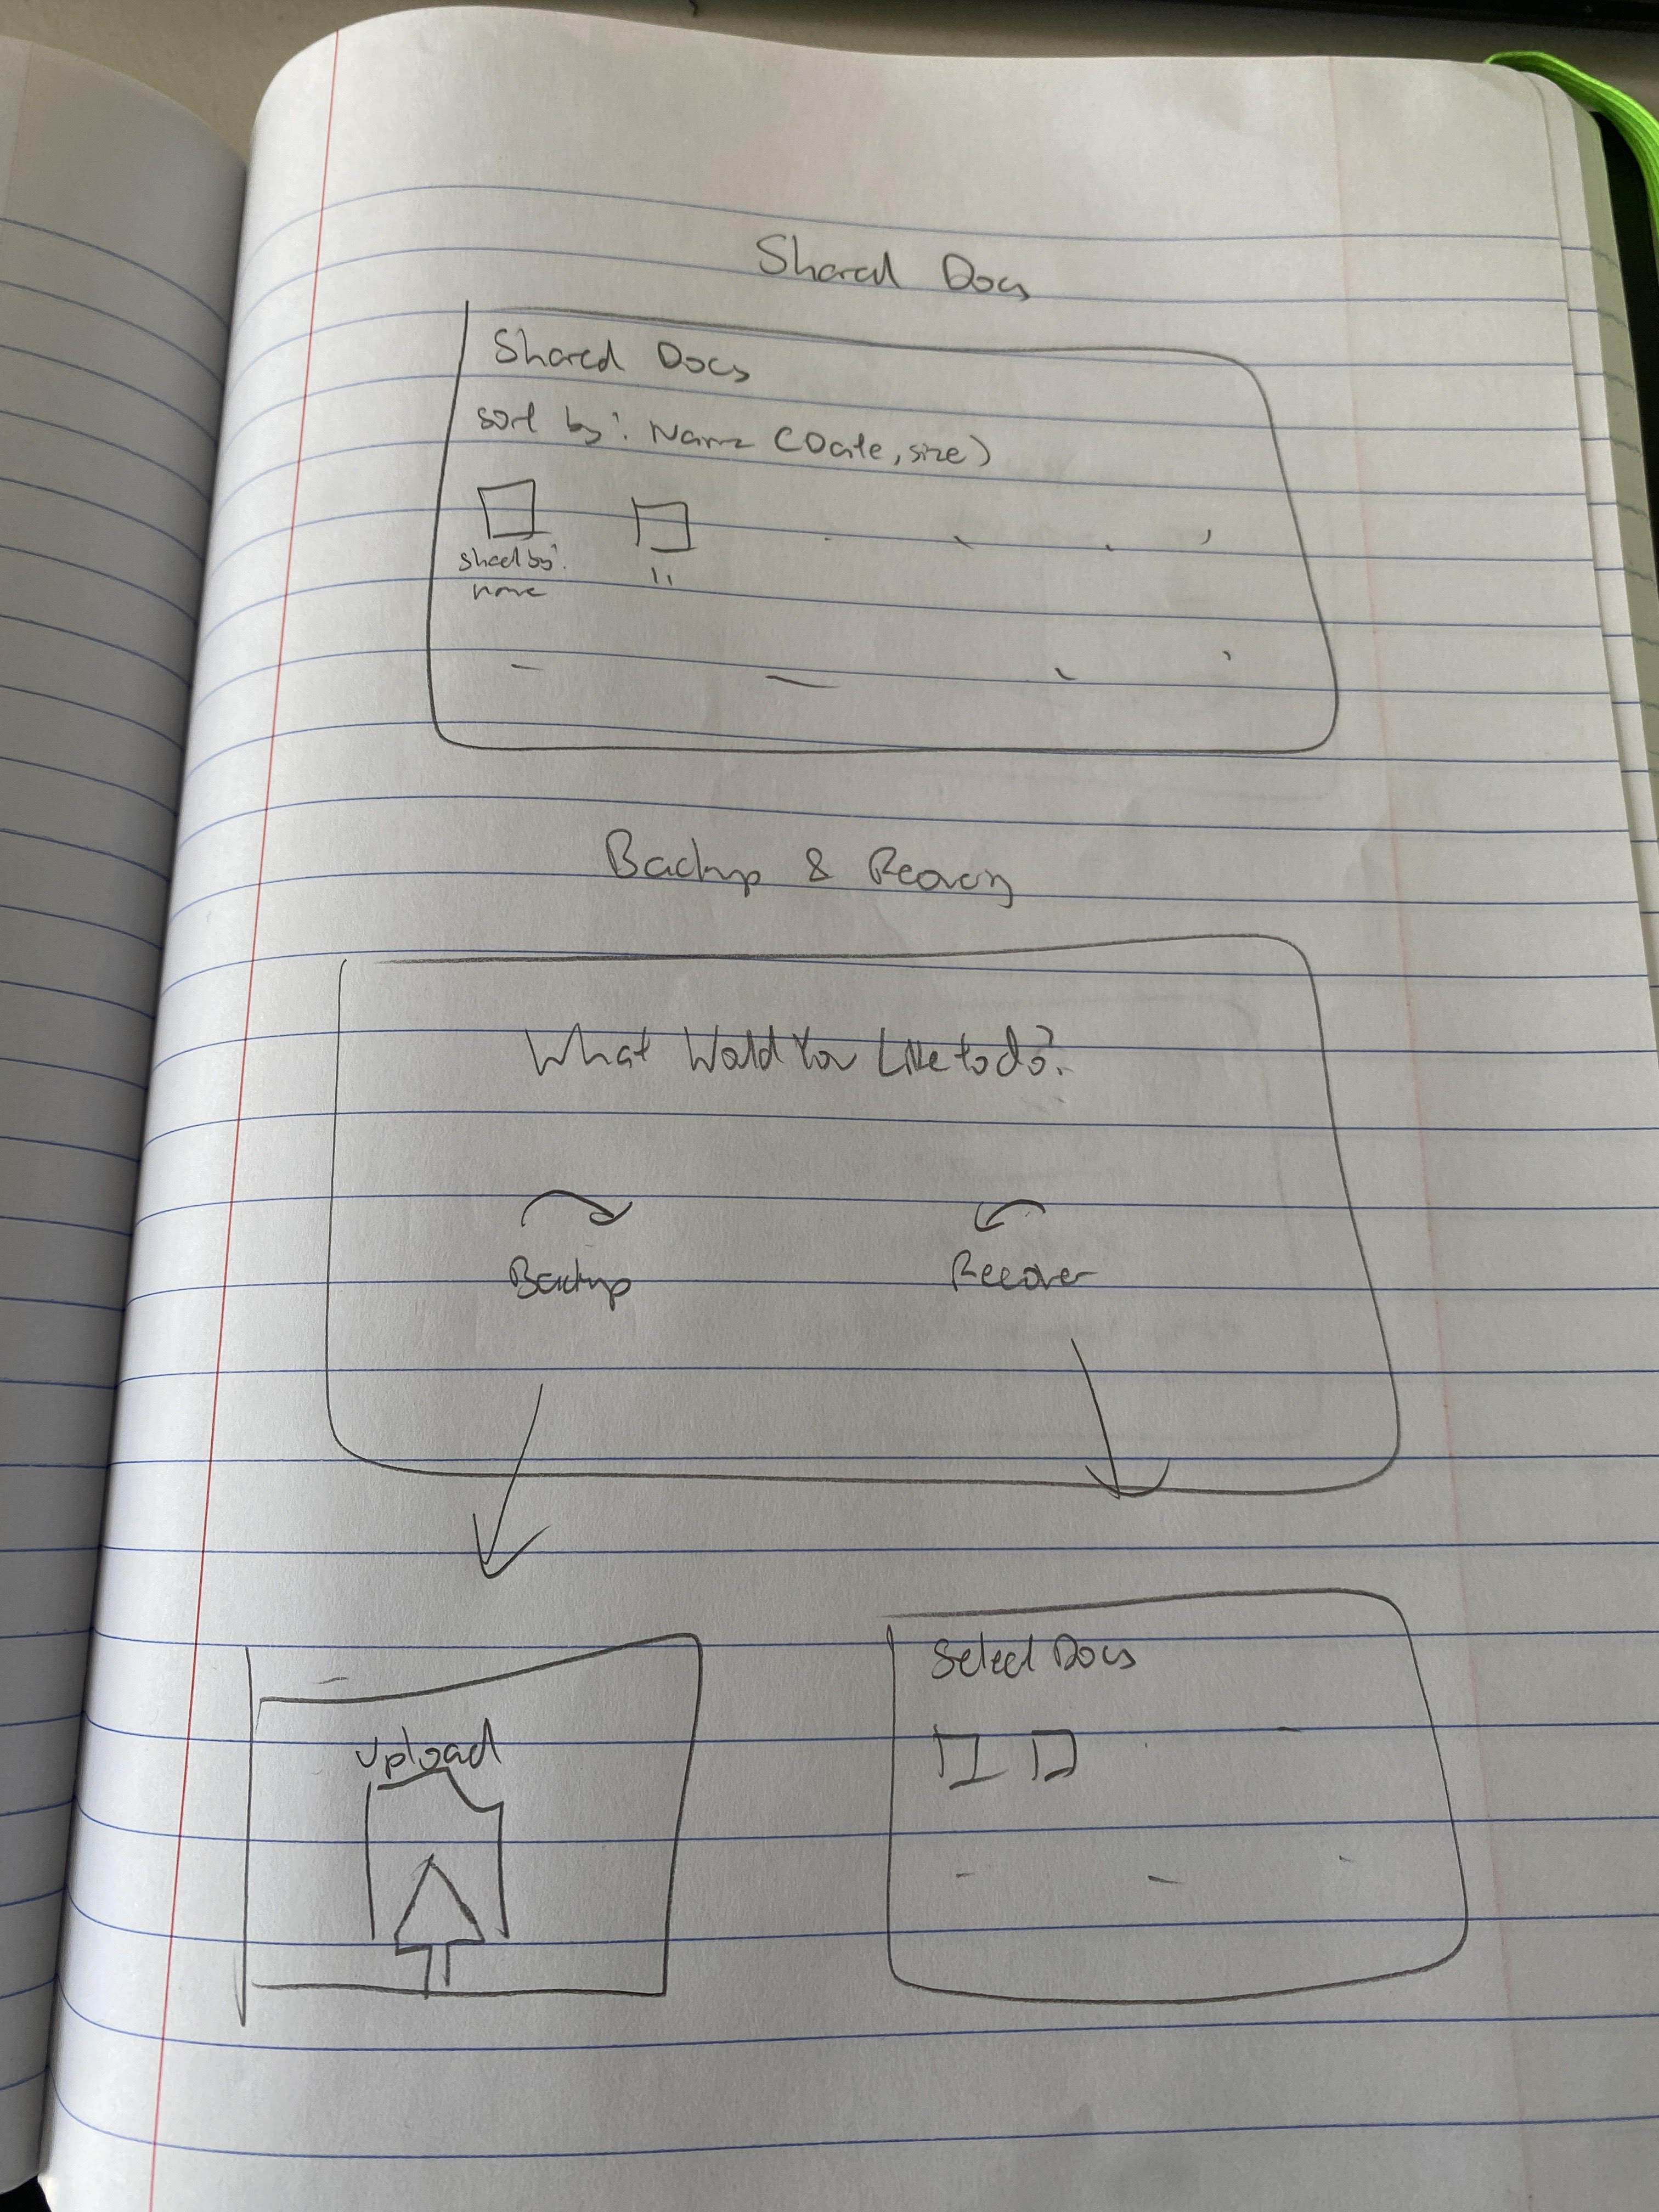 Shared Docs
Shared Docs
sort by: Name (Date, size)
Shared by:
name
"
Backup & Recovery
What Would You Like to do?
Backup
Recover
Upload
Select Docs